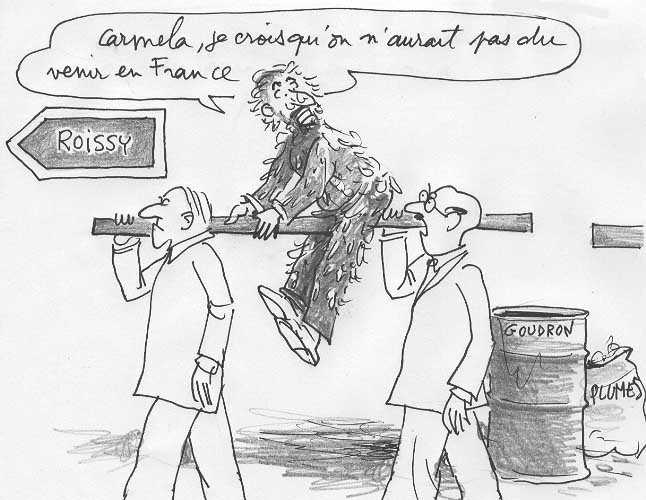 Carmela, je crois qu'on n'aurait pas du
venir en France
ROISSY
GOUDRON
PLUMES